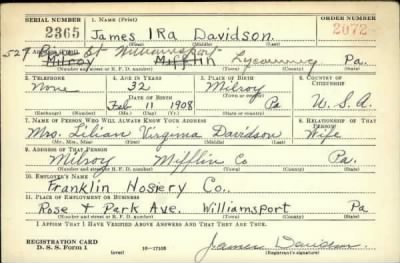 SERIAL NUMBER 1. NAME (Print) ORDER NUMBER
2365 James IRa Davidson 2072
(First) (Middle) (Last)
527 St Williamsport
2. ADDRESS (Print)
Milroy Mifflin Lycoming Pa.
(Number and street or R. F. D. number) (Town) (County) (State)
3. TELEPHONE 4. AGE IN YEARS 5. PLACE OF BIRTH 6. COUNTRY OF CITIZENSHIP
None 32 Milroy
DATE OF BIRTH
Feb 11 1908 Pa U. S. A.
(Exchange) (Number) (Mo.) (Day) (Yr.) (State or country)
7. NAME OF PERSON WHO WILL ALWAYS KNOW YOUR ADDRESS 8. RELATIONSHIP OF THAT PERSON
Mrs. Lilian Virginia Davidson Wife
(Mr., Mrs., Miss) (First) (Middle) (Last)
9. ADDRESS OF THAT PERSON
Milroy Mifflin Co Pa.
(Number and street or R. F. D. number) (Town) (County) (State)
10. EMPLOYER'S NAME
Franklin Hosiery Co.
11. PLACE OF EMPLOYMENT OR BUSINESS
Rose + Park Ave. Williamsport Pa
(Number and street or R. F. D. number) (Town) (County) (State)
I AFFIRM THAT I HAVE VERIFIED ABOVE ANSWERS AND THAT THEY ARE TRUE.
REGISTRATION CARD
D. S. S. Form 1 (over) 16—17105 James Davidson
(Registrant's signature)